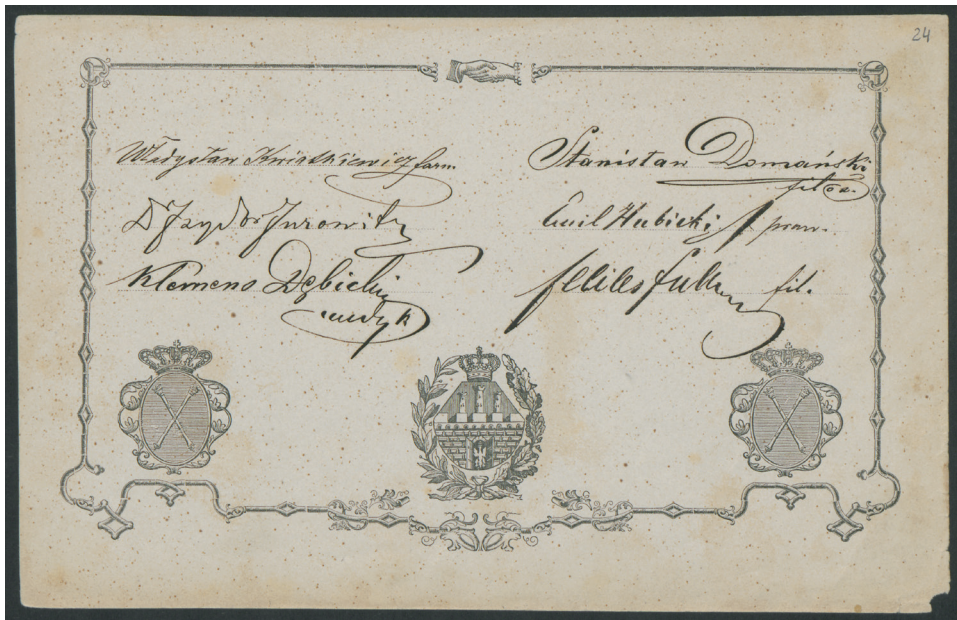 24
Władysław Kwiatkiewicz farm.
Izydor Jurowitz
Klemens Dębicki
medyk
Stanisław Domański
filoz.
Emil Hubicki praw.
fil.